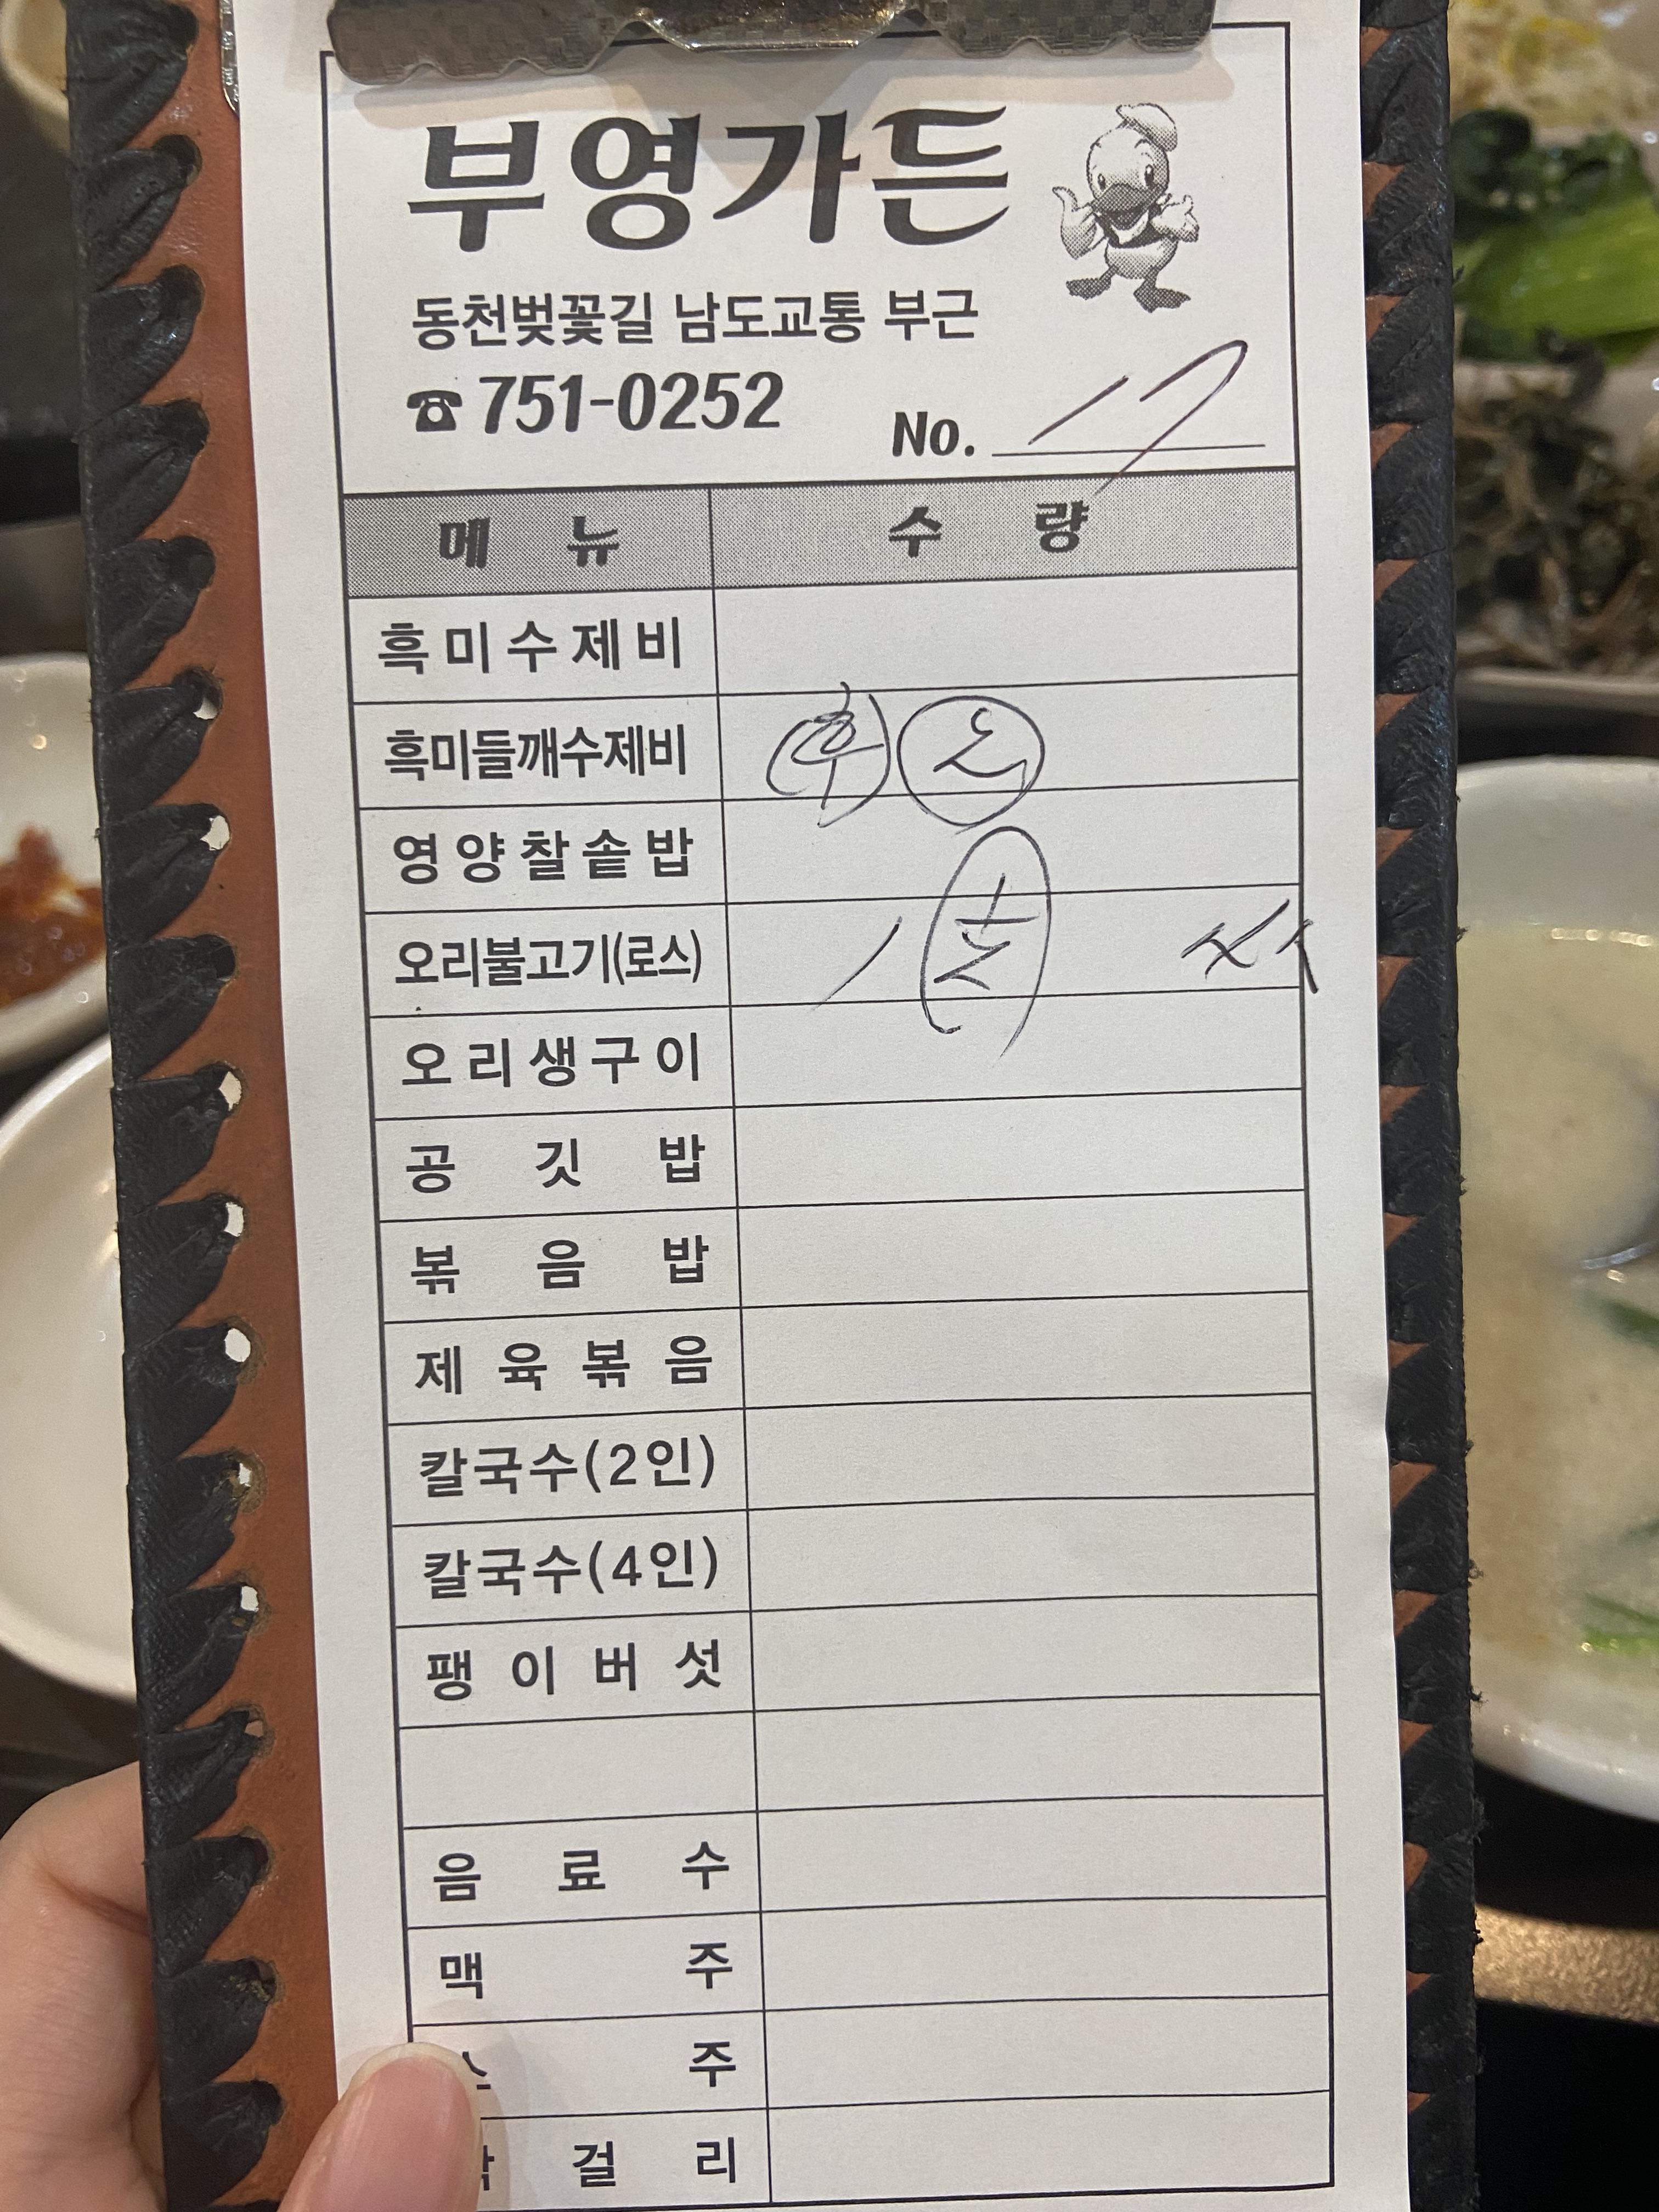 부영가든
동천벚꽃길 남도교통 부근
☎751-0252
No. 17
메 뉴 수 량
흑미수제비
흑미들깨수제비 후
영양찰솥밥
오리불고기(로스) 1
오리생구이
공깃밥
볶음밥
제육볶음
칼국수(2인)
칼국수(4인)
팽이버섯
음료수
맥주
주
걸리